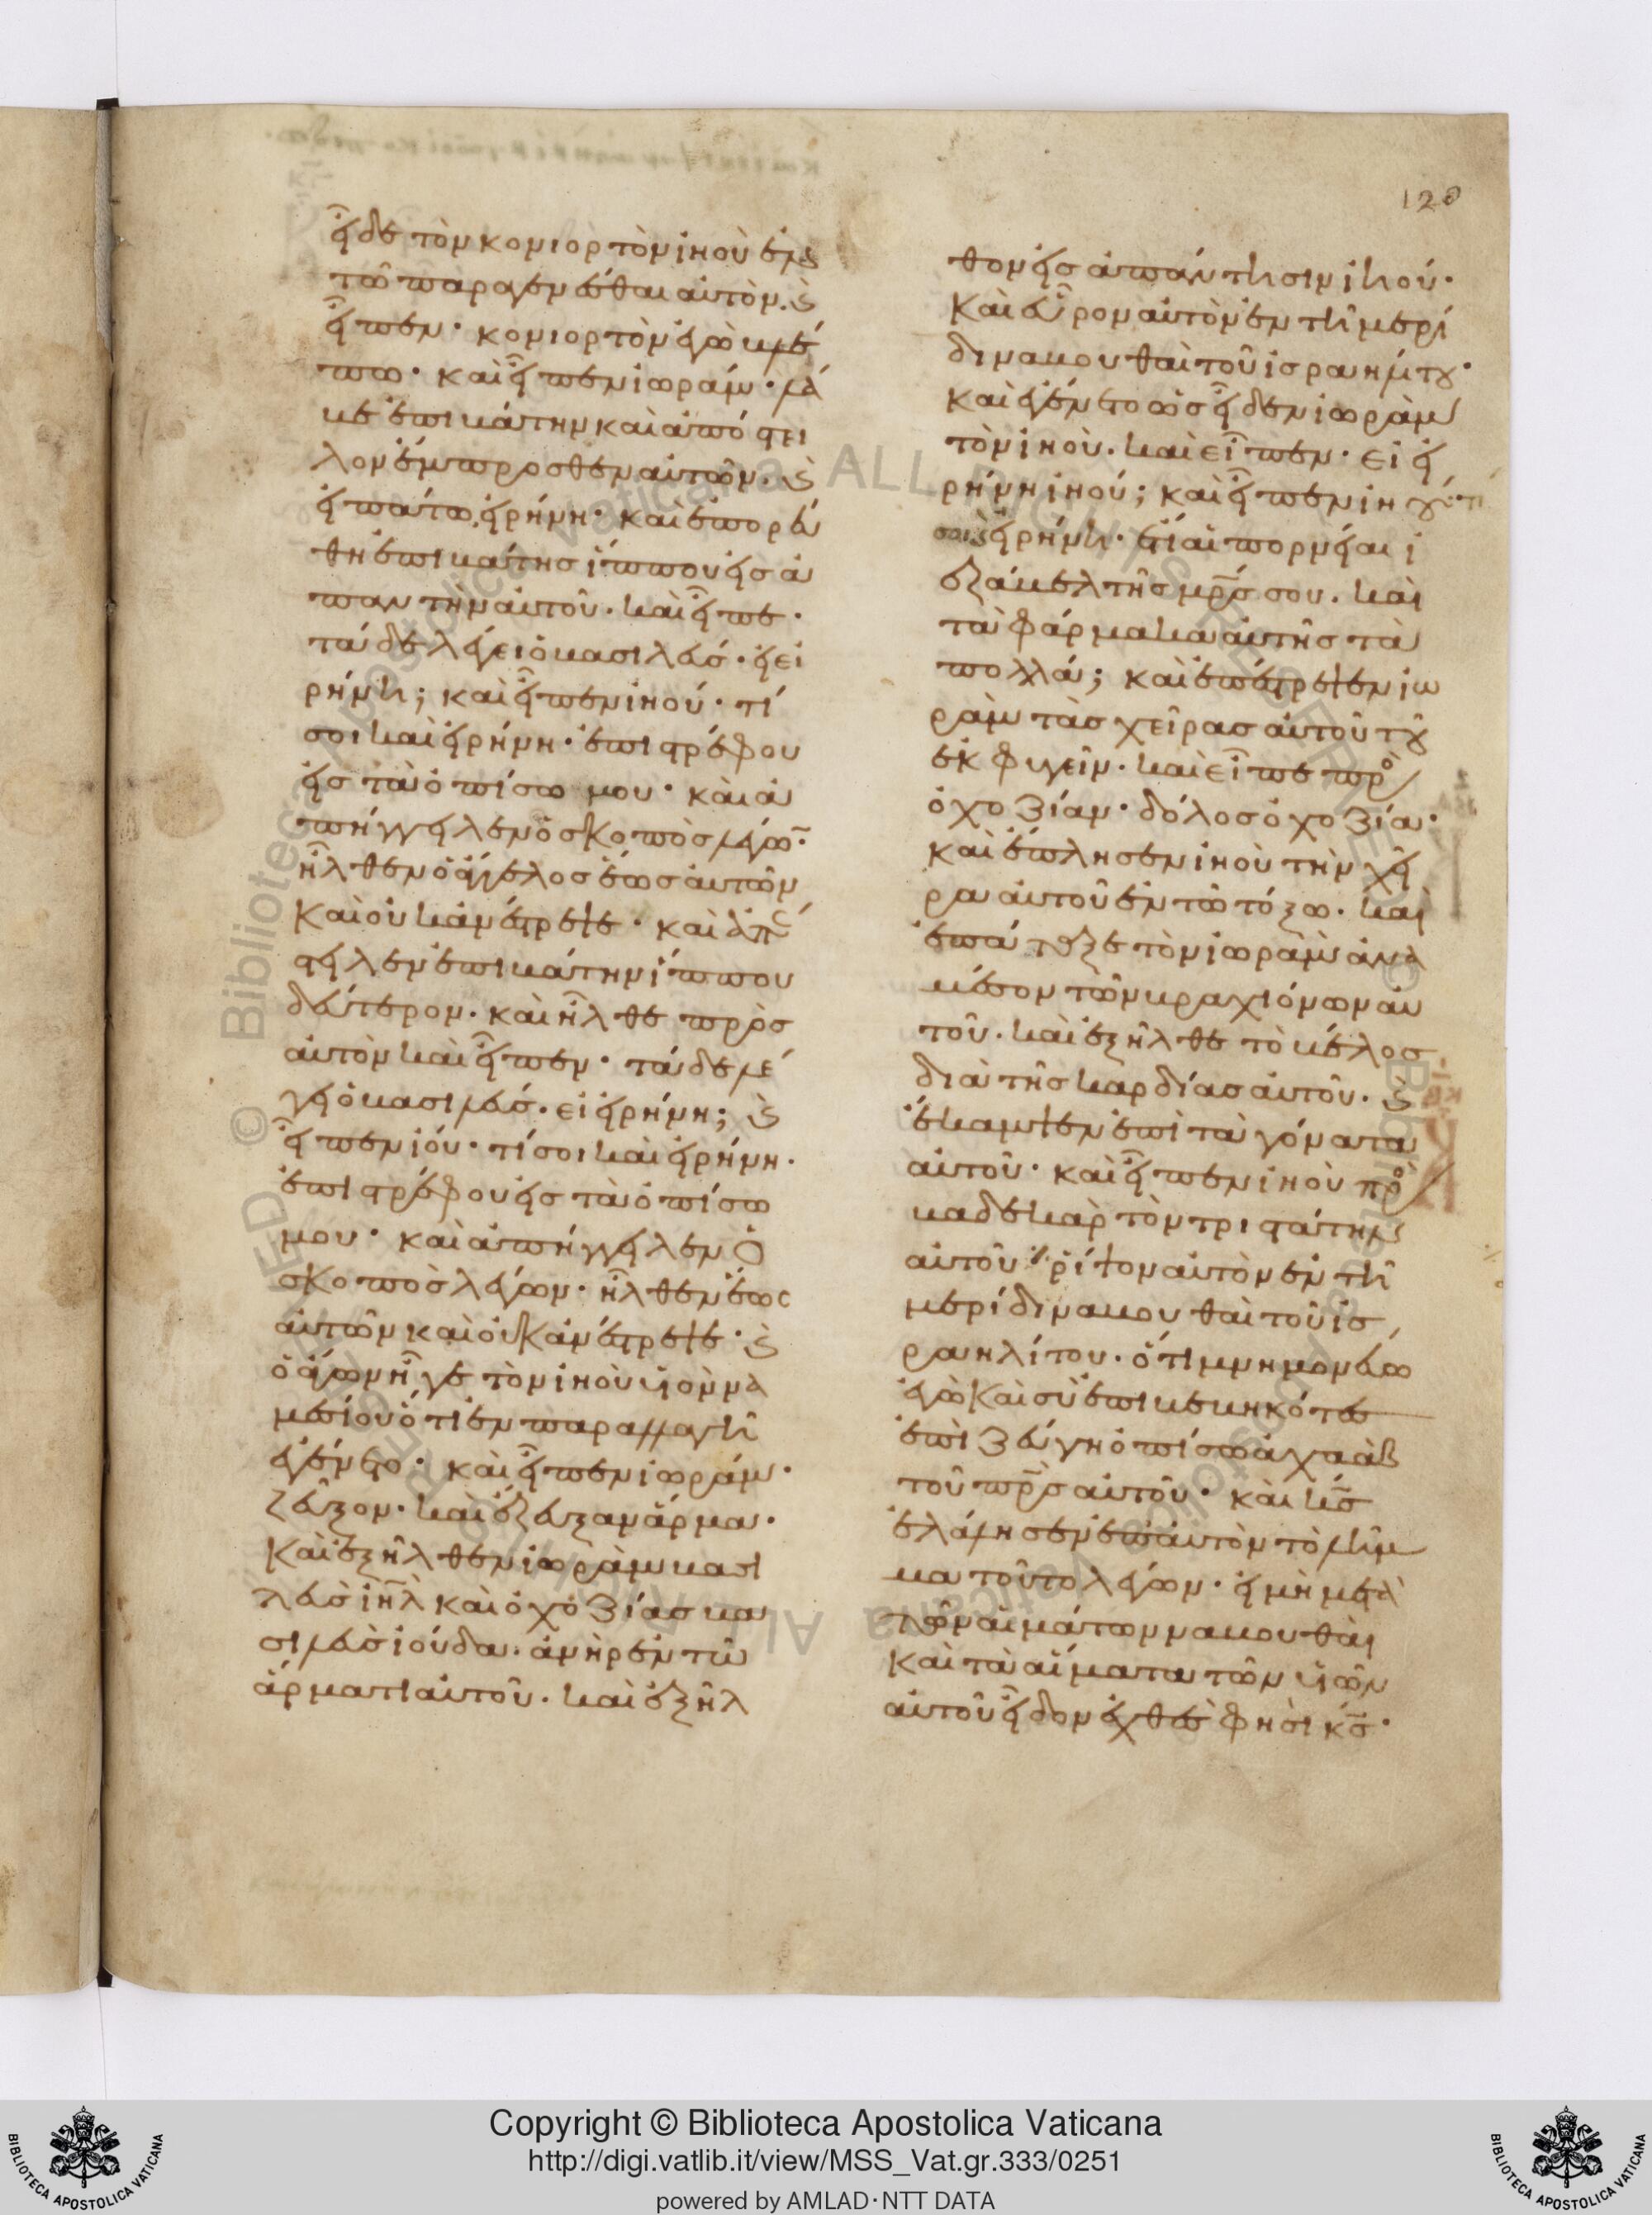 120
εἶδε τὸν κονιορτὸν ἰηοὺ ἐν
τῶ παραγενέσθαι αὐτὸν. καὶ
εἶπεν· κονιορτὸν ἐγὼ βλέ
πω· καὶ εἶπεν ἰωράμ· λά
βε ἐπιβάτην καὶ ἀπόστει
λον ἔμπροσθεν αὐτῶν. καὶ
εἰπάτω, εἰρήνη· καὶ ἐπορεύ
θη ἐπιβάτης ἵππου εἰς ἀ
παντὴν αὐτοῦ. καὶ εἶπε·
τάδε λέγει ὁ βασιλεύς· ἡ εἰ
ρήνη; καὶ εἶπεν ἰηού· τί
σοι καὶ εἰρήνη· ἐπιστρέφου
εἰς τὰ ὀπίσω μου· καὶ ἀ
πήγγειλεν ὁ σκοπὸς λέγω̄·
ἦλθεν ὁ ἄγγελος ἕως αὐτῶν
καὶ οὐκ ἀνέστρεψε· καὶ ἀπέ
στειλεν ἐπιβάτην ἵππου
δεύτερον· καὶ ἦλθε πρὸς
αὐτὸν καὶ εἶπεν· τάδε λέ
γει ὁ βασιλεύς· εἰ εἰρήνη; καὶ
εἶπεν ἰού· τί σοι καὶ εἰρήνη·
ἐπιστρέφου εἰς τὰ ὀπίσω
μου· καὶ ἀπήγγειλεν ὁ
σκοπὸς λέγων· ἦλθεν ἕως
αὐτῶν καὶ οὐκ ἀνέστρεψε· καὶ
ὁ ἄγων ἦγε τὸν ἰηοὺ υἱὸν να
μεσίου ὅτι ἐν παραλλαγῆ
ἐγένετο· καὶ εἶπεν ἰωράμ·
ζεῦξον· καὶ ἔζευξαν ἅρμα·
καὶ ἐξῆλθεν ἰωρὰμ βασι
λεὺς ἰηλ καὶ ὀχοζίας βα
σιλεὺς ἰούδα· ἀνὴρ ἐν τῶ
ἅρματι αὐτοῦ. καὶ ἐξῆλ
θον εἰς ἀπάντησιν ἰηού·
καὶ εὗρον αὐτὸν ἐν τῆ μερί
δι ναβουθαὶ τοῦ ἰσραηλίτου·
καὶ ἐγένετο ὡς εἶδεν ἰωρὰμ
τὸν ἰηού. καὶ εἶπεν· εἰ εἰ
ρήνη ἰηού; καὶ εἶπεν ἰηού· τί
σοι καὶ εἰρήνη· ἔτι αἱ πορνεῖαι ἰ
εζάβελ τῆς μρς σου. καὶ
τὰ φάρμακα αὐτῆς τὰ
πολλά; καὶ ἐπέστρεψεν ἰω
ρὰμ τὰς χεῖρας αὐτοῦ τοῦ
ἐκφυγεῖν. καὶ εἶπε πρὸς
ὀχοζίαν· δόλος ὀχοζία·
καὶ ἔπλησεν ἰηοὺ τὴν χεῖ
ρα αὐτοῦ ἐν τῶ τόξω. καὶ
ἐπάταξε τὸν ἰωρὰμ ἀνὰ
μέσον τῶν βραχιόνων αὐ
τοῦ. καὶ ἐξῆλθε τὸ βέλος
διὰ τῆς καρδίας αὐτοῦ. καὶ
ἔκαμψεν ἐπὶ τὰ γόνατα
αὐτοῦ· καὶ εἶπεν ἰηοὺ πρὸς
βαδεκὰρ τὸν τριστάτην
αὐτοῦ· ῥίψον αὐτὸν ἐν τῆ
μερίδι ναβουθαὶ τοῦ ἰσ
ραηλίτου. ὅτι μνημονεύω
ἐγὼ καὶ σὺ ἐπιβεβηκότες
ἐπὶ ζεύγη ὀπίσω ἀχαὰβ
τοῦ πρς αὐτοῦ· καὶ κς
ἔλάλησεν ἐπ' αὐτὸν τὸ λῆμ
μα τοῦτο λέγων· εἰ μὴ μετὰ
τῶν αἱμάτων ναβουθαὶ
καὶ τὰ αἵματα τῶν υἱῶν
αὐτοῦ εἶδον ἐχθὲς φησὶ κς·
Copyright © Biblioteca Apostolica Vaticana
http://digi.vatlib.it/view/MSS_Vat.gr.333/0251
powered by AMLAD·NTT DATA